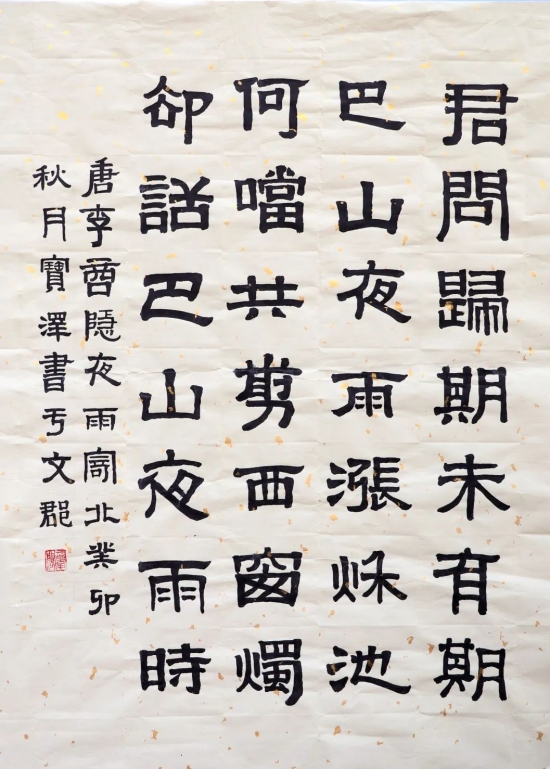 君問歸期未有期
巴山夜雨漲秋池
何噹共剪西窗燭
卻話巴山夜雨時
唐李商隱夜雨寄北癸卯
秋月寶澤書于文郡